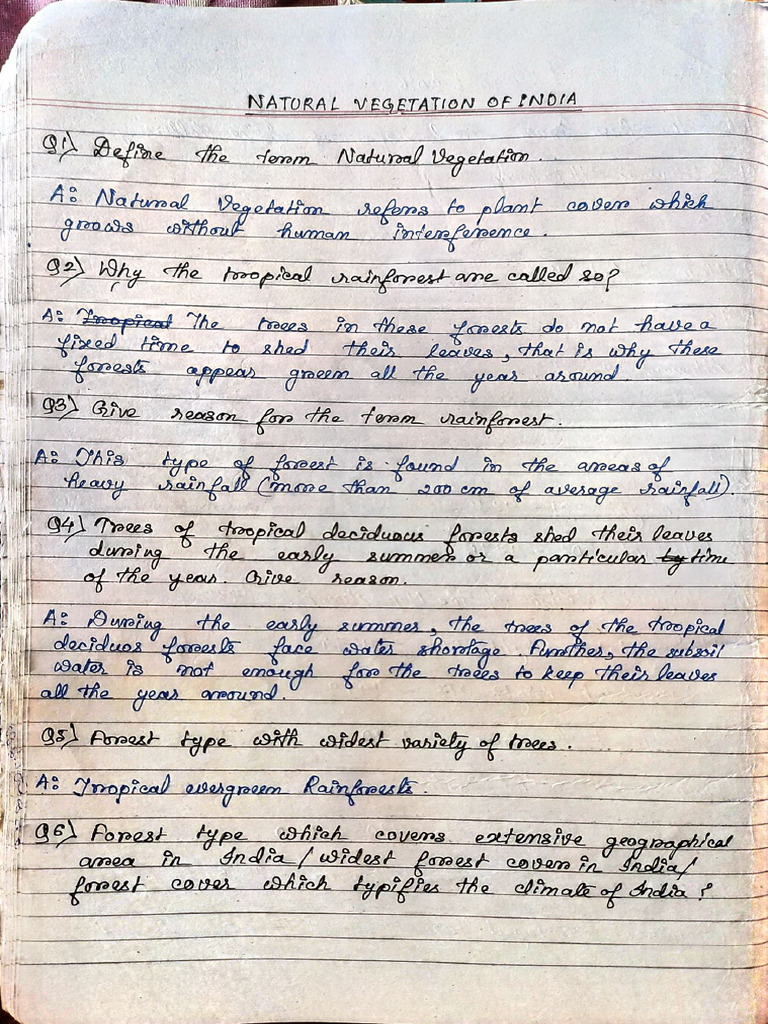 NATURAL VEGETATION OF INDIA
Q1) Define the term Natural Vegetation.
A: Natural Vegetation refers to plant cover which
grows without human interference.
Q2) Why the tropical rainforest are called so?
A: Tropical The trees in these forests do not have a
fixed time to shed their leaves, that is why these
forests appear green all the year around.
Q3) Give reason for the term rainforest.
A: This type of forest is found in the areas of
heavy rainfall (more than 200 cm of average rainfall).
Q4) Trees of tropical deciduous forests shed their leaves
during the early summer or a particular ty time
of the year. Give reason.
A: During the early summer, the trees of the tropical
deciduos forests face water shortage. Further, the subsoil
water is not enough for the trees to keep their leaves
all the year around.
Q5) Forest type with widest variety of trees.
A: Tropical evergreen Rainforests.
Q6) Forest type which covers extensive geographical
area in India / widest forest cover in India /
forest cover which typifies the climate of India?